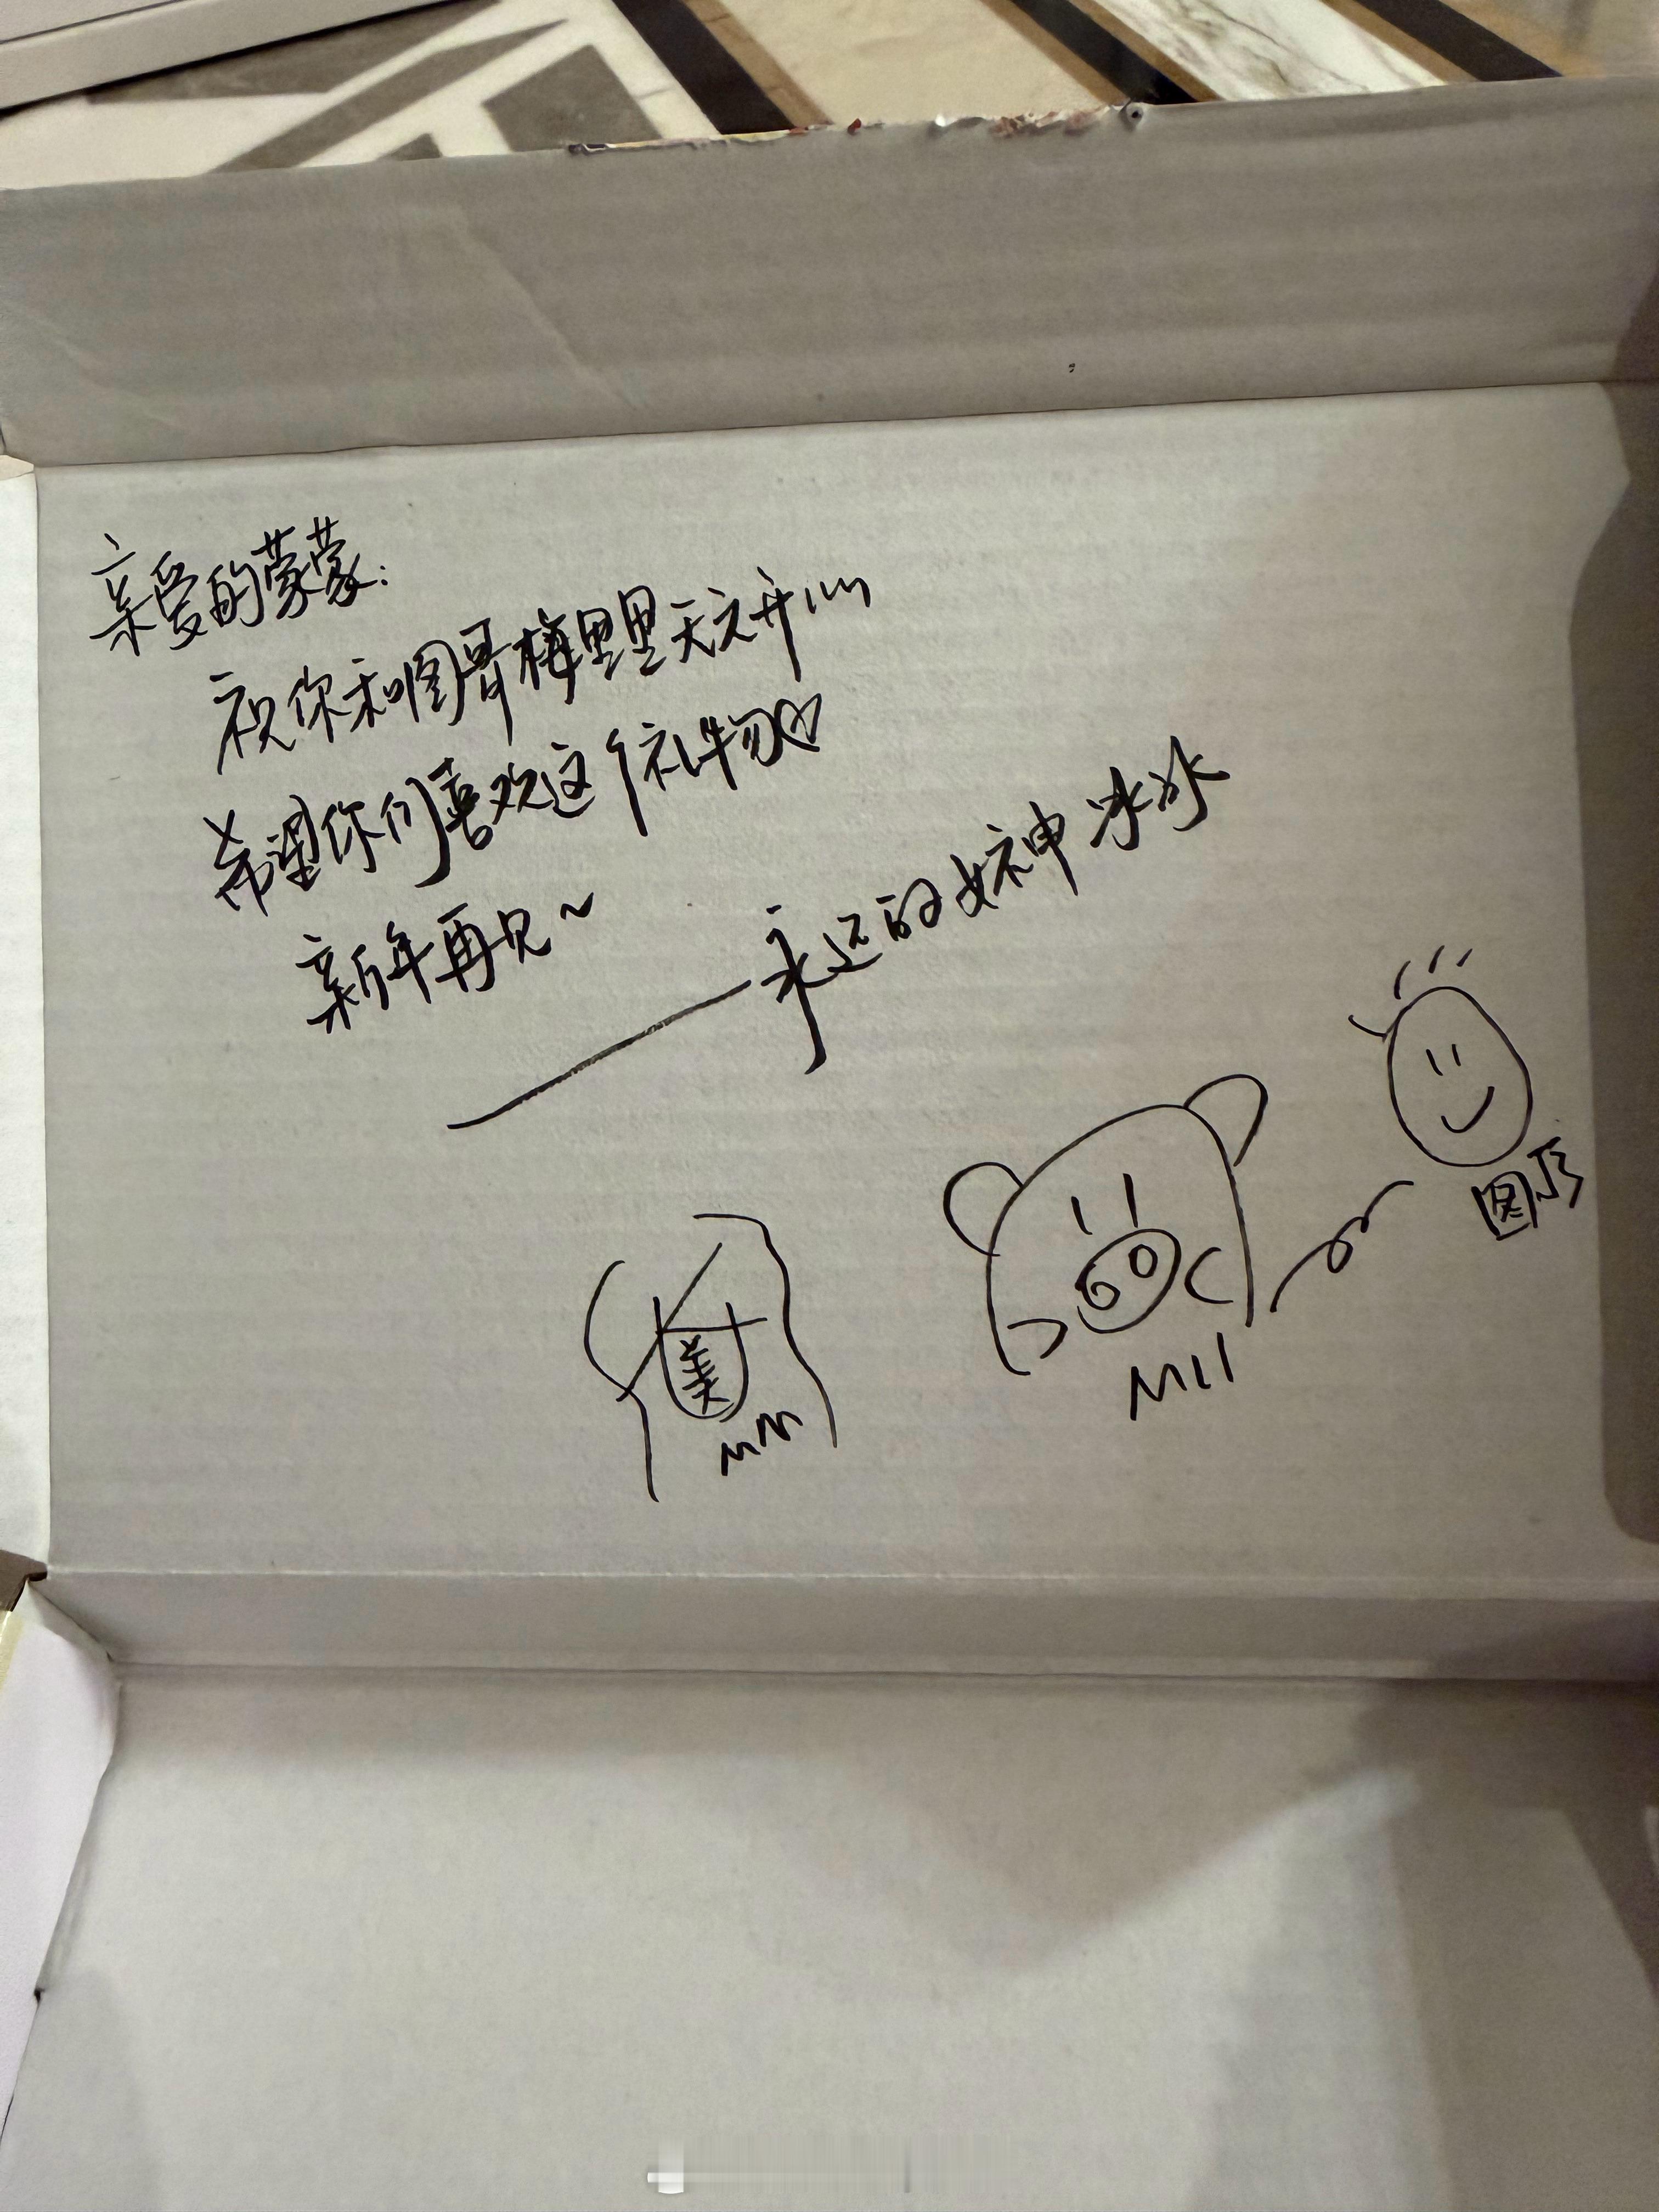 亲爱的蒙蒙:
祝你和图哥梅里里天天开心
希望你们喜欢这个礼物♡
新年再见~
——永远的女神冰冰
图乃
MLL
美
MM